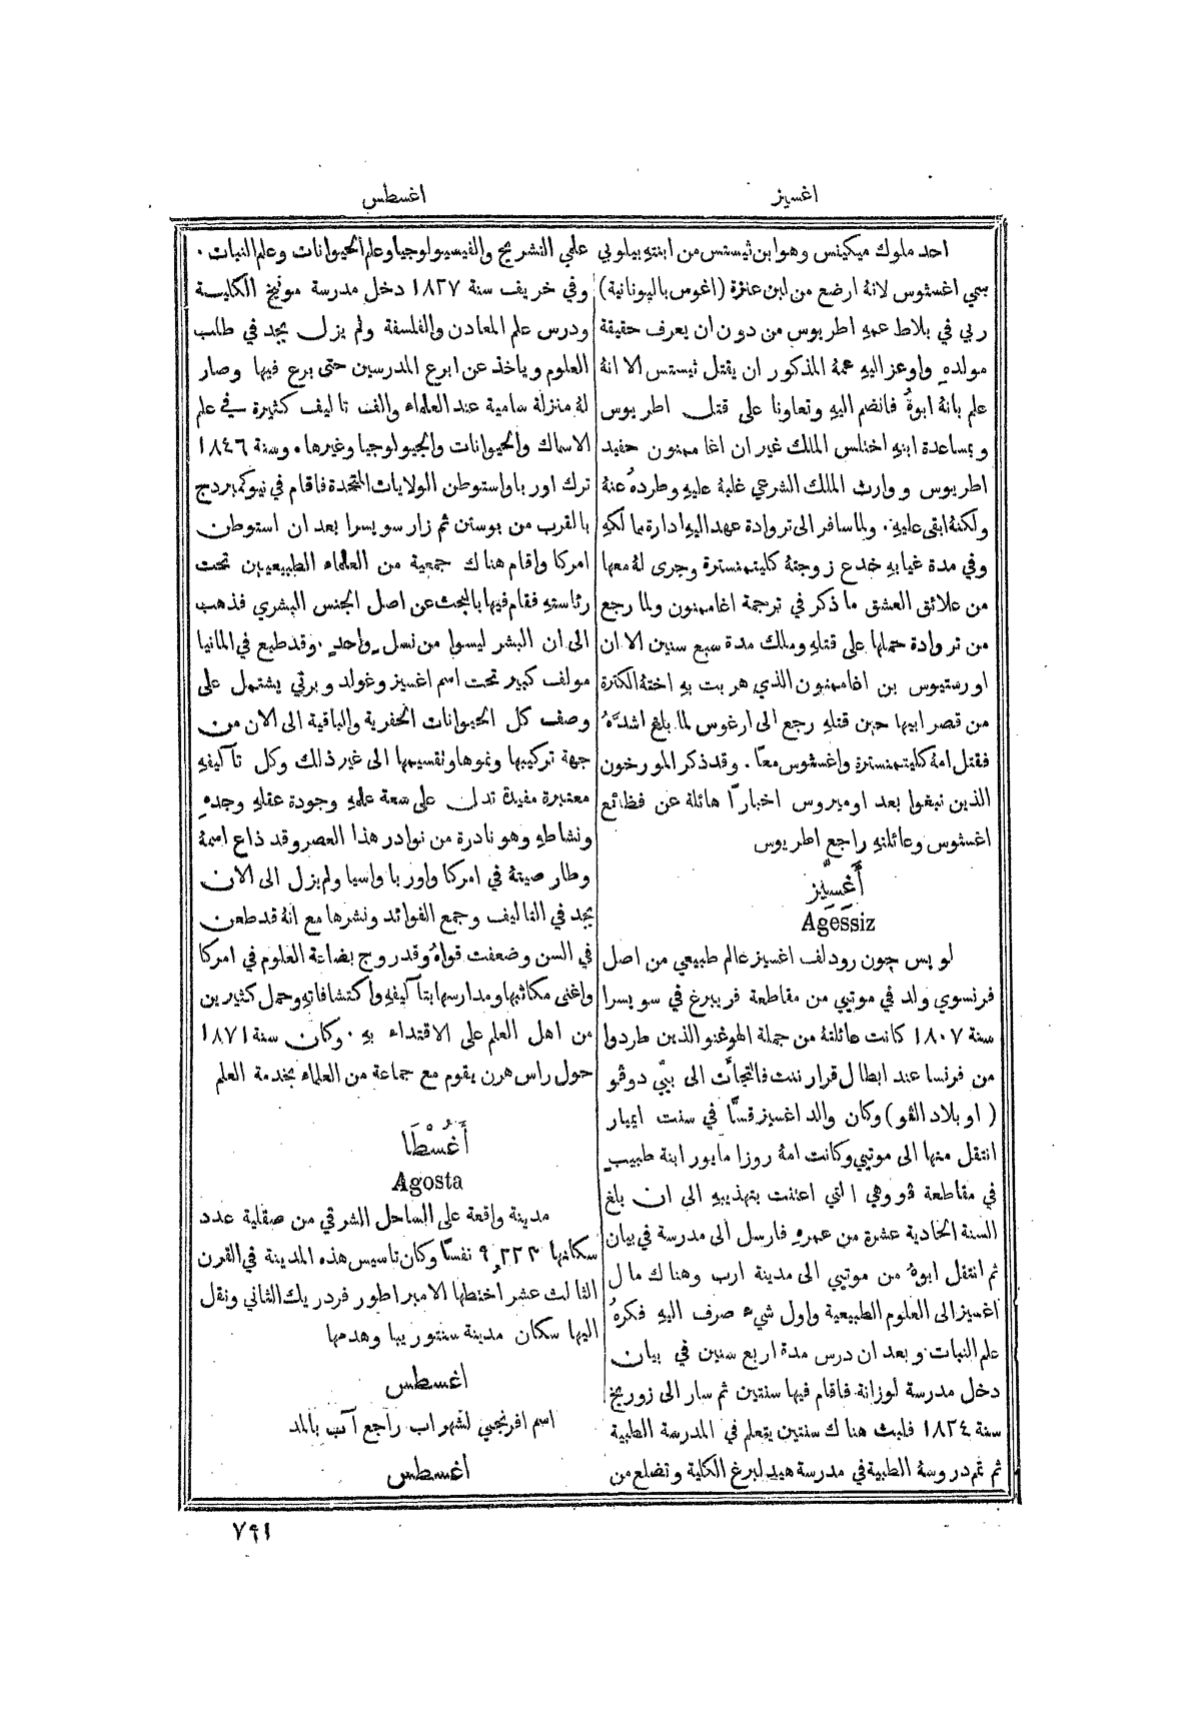 اغسيز
اغسطس
احد ملوك ميكينس وهو ابن ثيستس من ابنتهِ بيلوبي
سمي اغسثوس لانهُ ارضع من لبن عنزة (اغوس باليونانية)
ربي في بلاط عمهِ اطريوس من دون ان يعرف حقيقة
مولدهِ واوعز اليهِ عمهُ المذكور ان يقتل ثيستس الا انهُ
علم بانهُ ابوهُ فانضم اليهِ وتعاونا على قتل اطريوس
وبمساعدة ابنهِ اختلس الملك غير ان اغاممنون حفيد
اطريوس ووارث الملك الشرعي غلبهُ عليهِ وطردهُ عنهُ
ولكنهُ ابقى عليهِ٠ ولما سافر الى تروادة عهد اليهِ ادارة ممالكهِ
وفي مدة غيابهِ خدع زوجتهُ كليتمنسترة وجرى لهُ معها
من علائق العشق ما ذكر في ترجمة اغاممنون ولما رجع
من تروادة حملها على قتلهِ وملك مدة سبع سنين الا ان
اورستيوس بن اغاممنون الذي هربت بهِ اختهُ الكترة
من قصر ابيها حين قتلهِ رجع الى ارغوس لما بلغ اشدَّهُ
فقتل امهُ كليتمنسترة واغسثوس معًا٠ وقد ذكر المورخون
الذين نبغوا بعد اوميروس اخبارًا هائلة عن فظائع
اغسثوس وعائلتهِ راجع اطريوس
أَغَسِيّز
Agessiz
لويس جون رودلف اغسيز عالم طبيعي من اصل
فرنسوي ولد في موتيي من مقاطعة فريبرغ في سويسرا
سنة ١٨٠٧ كانت عائلتهُ من جملة الهوغنو الذين طردوا
من فرنسا عند ابطال قرار ننت فالتجأت الى بيّي دوڤو
(او بلاد الڤو) وكان والد اغسيز قسًّا في سنت ايميار
انتقل منها الى موتيي وكانت امهُ روزا مايور ابنة طبيب
في مقاطعة ڤو وهي التي اعتنت بتهذيبهِ الى ان بلغ
السنة الحادية عشرة من عمرهِ فارسل الى مدرسة في بيان
ثم انتقل ابوهُ من موتيي الى مدينة ارب وهناك مال
اغسيز الى العلوم الطبيعية واول شيء صرف اليهِ فكرهُ
علم النبات وبعد ان درس مدة اربع سنين في بيان
دخل مدرسة لوزانة فاقام فيها سنتين ثم سار الى زوريخ
سنة ١٨٢٤ فلبث هناك سنتين يتعلم في المدرسة الطبية
ثم تمم دروسهُ الطبية في مدرسة هيدلبرغ الكلية وتضلع من
علمي التشريح والفيسيولوجيا وعلم الحيوانات وعلم النبات٠
وفي خريف سنة ١٨٢٧ دخل مدرسة مونيخ الكلية
ودرس علم المعادن والفلسفة ولم يزل يجد في طلب
العلوم وياخذ عن ابرع المدرسين حتى برع فيها وصار
لهُ منزلة سامية عند العلماء والف تاليف كثيرة في علم
الاسماك والحيوانات والجيولوجيا وغيرها٠ وسنة ١٨٤٦
ترك اوربا واستوطن الولايات المتحدة فاقام في نيوكمبردج
بالقرب من بوستن ثم زار سويسرا بعد ان استوطن
امركا واقام هناك جمعية من العلماء الطبيعيين تحت
رئاستهِ فقام فيها بالبحث عن اصل الجنس البشري فذهب
الى ان البشر ليسوا من نسل واحدٍ٠ وقد طبع في المانيا
مولف كبير تحت اسم اغسيز وغولد وبرتي يشتمل على
وصف كل الحيوانات الحفرية والباقية الى الان من
جهة تركيبها ونموها وتقسيمها الى غير ذلك وكل تآليفهِ
معتبرة مفيدة تدل على سعة علمهِ وجودة عقلهِ وجدهِ
ونشاطهِ وهو نادرة من نوادر هذا العصر وقد ذاع اسمهُ
وطار صيتهُ في امركا واوربا واسيا ولم يزل الى الان
يجد في التاليف وجمع الفوائد ونشرها مع انهُ قد طعن
في السن وضعفت قواهُ وقد روج بضاعة العلوم في امركا
واغنى مكاتبها ومدارسها بتآليفهِ واكتشافاتهِ وحمل كثيرين
من اهل العلم على الاقتداء بهِ ٠ وكان سنة ١٨٧١
حول راس هرن يقوم مع جماعة من العلماء بخدمة العلم
أَغُسْطَا
Agosta
مدينة واقعة على الساحل الشرقي من صقلية عدد
سكانها ٩,٢٢٣ نفسًا وكان تاسيس هذه المدينة في القرن
الثالث عشر اختطها الامبراطور فردريك الثاني ونقل
اليها سكان مدينة سنتوريبا وهدمها
اغسطس
اسم افرنجي لشهر اب راجع آب بالمد
اغسطس
٧٩١